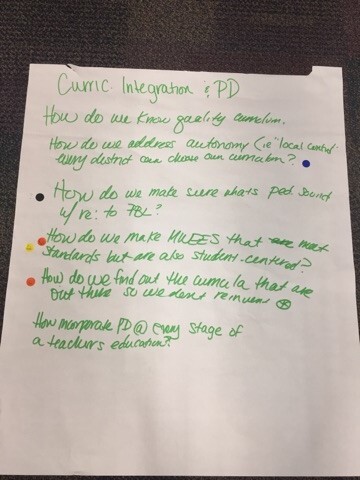 Curric. Integration & PD
How do we know quality curriculum.
How do we address autonomy (ie "local control"
every district can choose own curriculum?
How do we make sure whats ped sound
w/ re: to PBL?
How do we make that are meet
standards but are also student-centered?
How do we find out the curricula that are
out there so we don't
How incorporate PD @ every stage of
a teachers education?